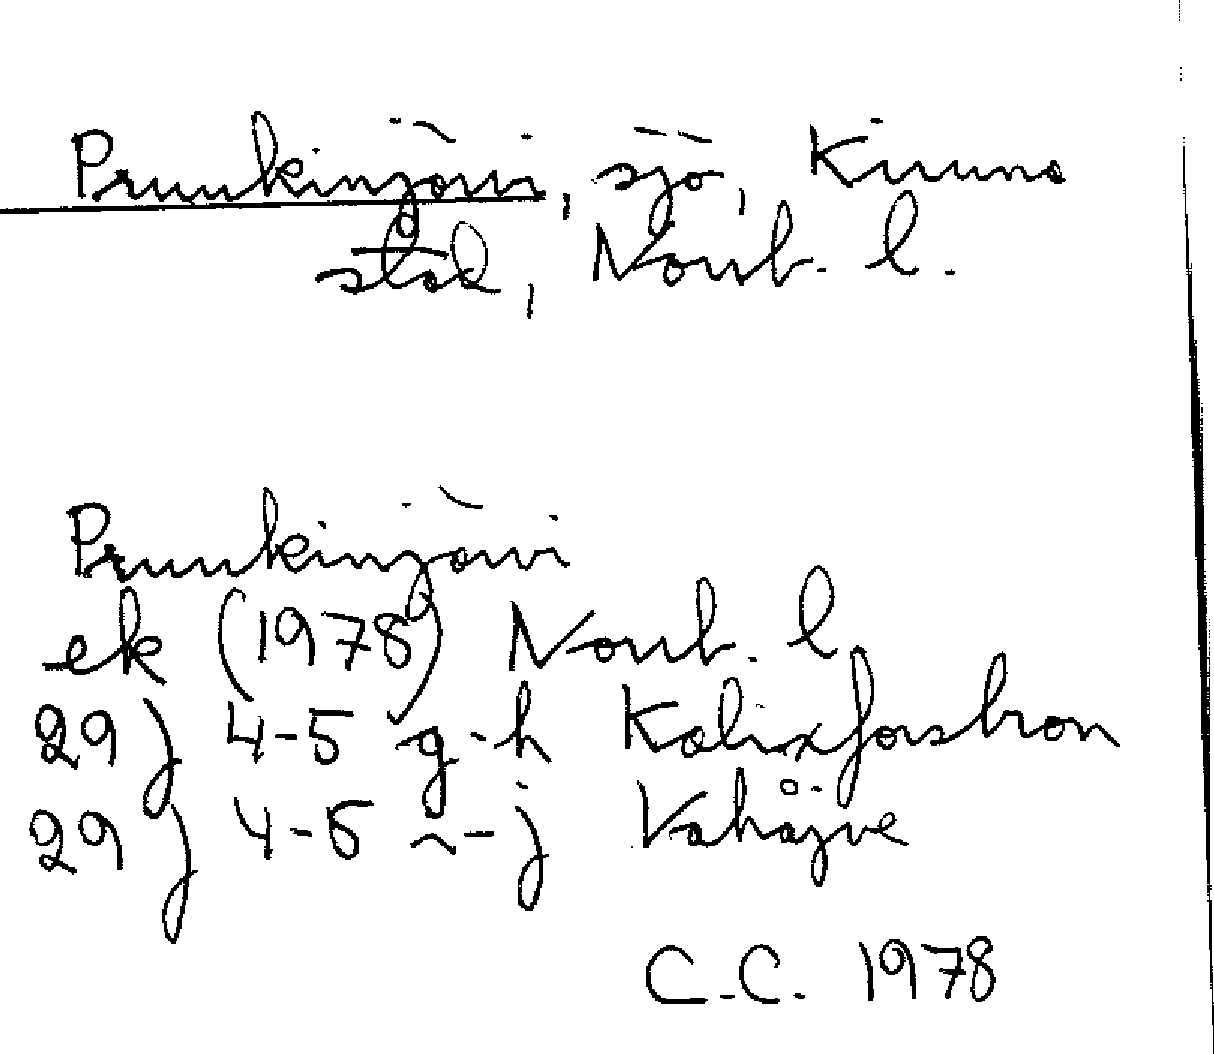 Pruukinjärvi, sjö, Kiruna
stad, Norrb. l.
Pruukinjärvi
ek (1978) Norrb. l
29 J 4-5 g-h Kalixforsbron
29 J 4-5 i-j Vahåjve
C.C. 1978